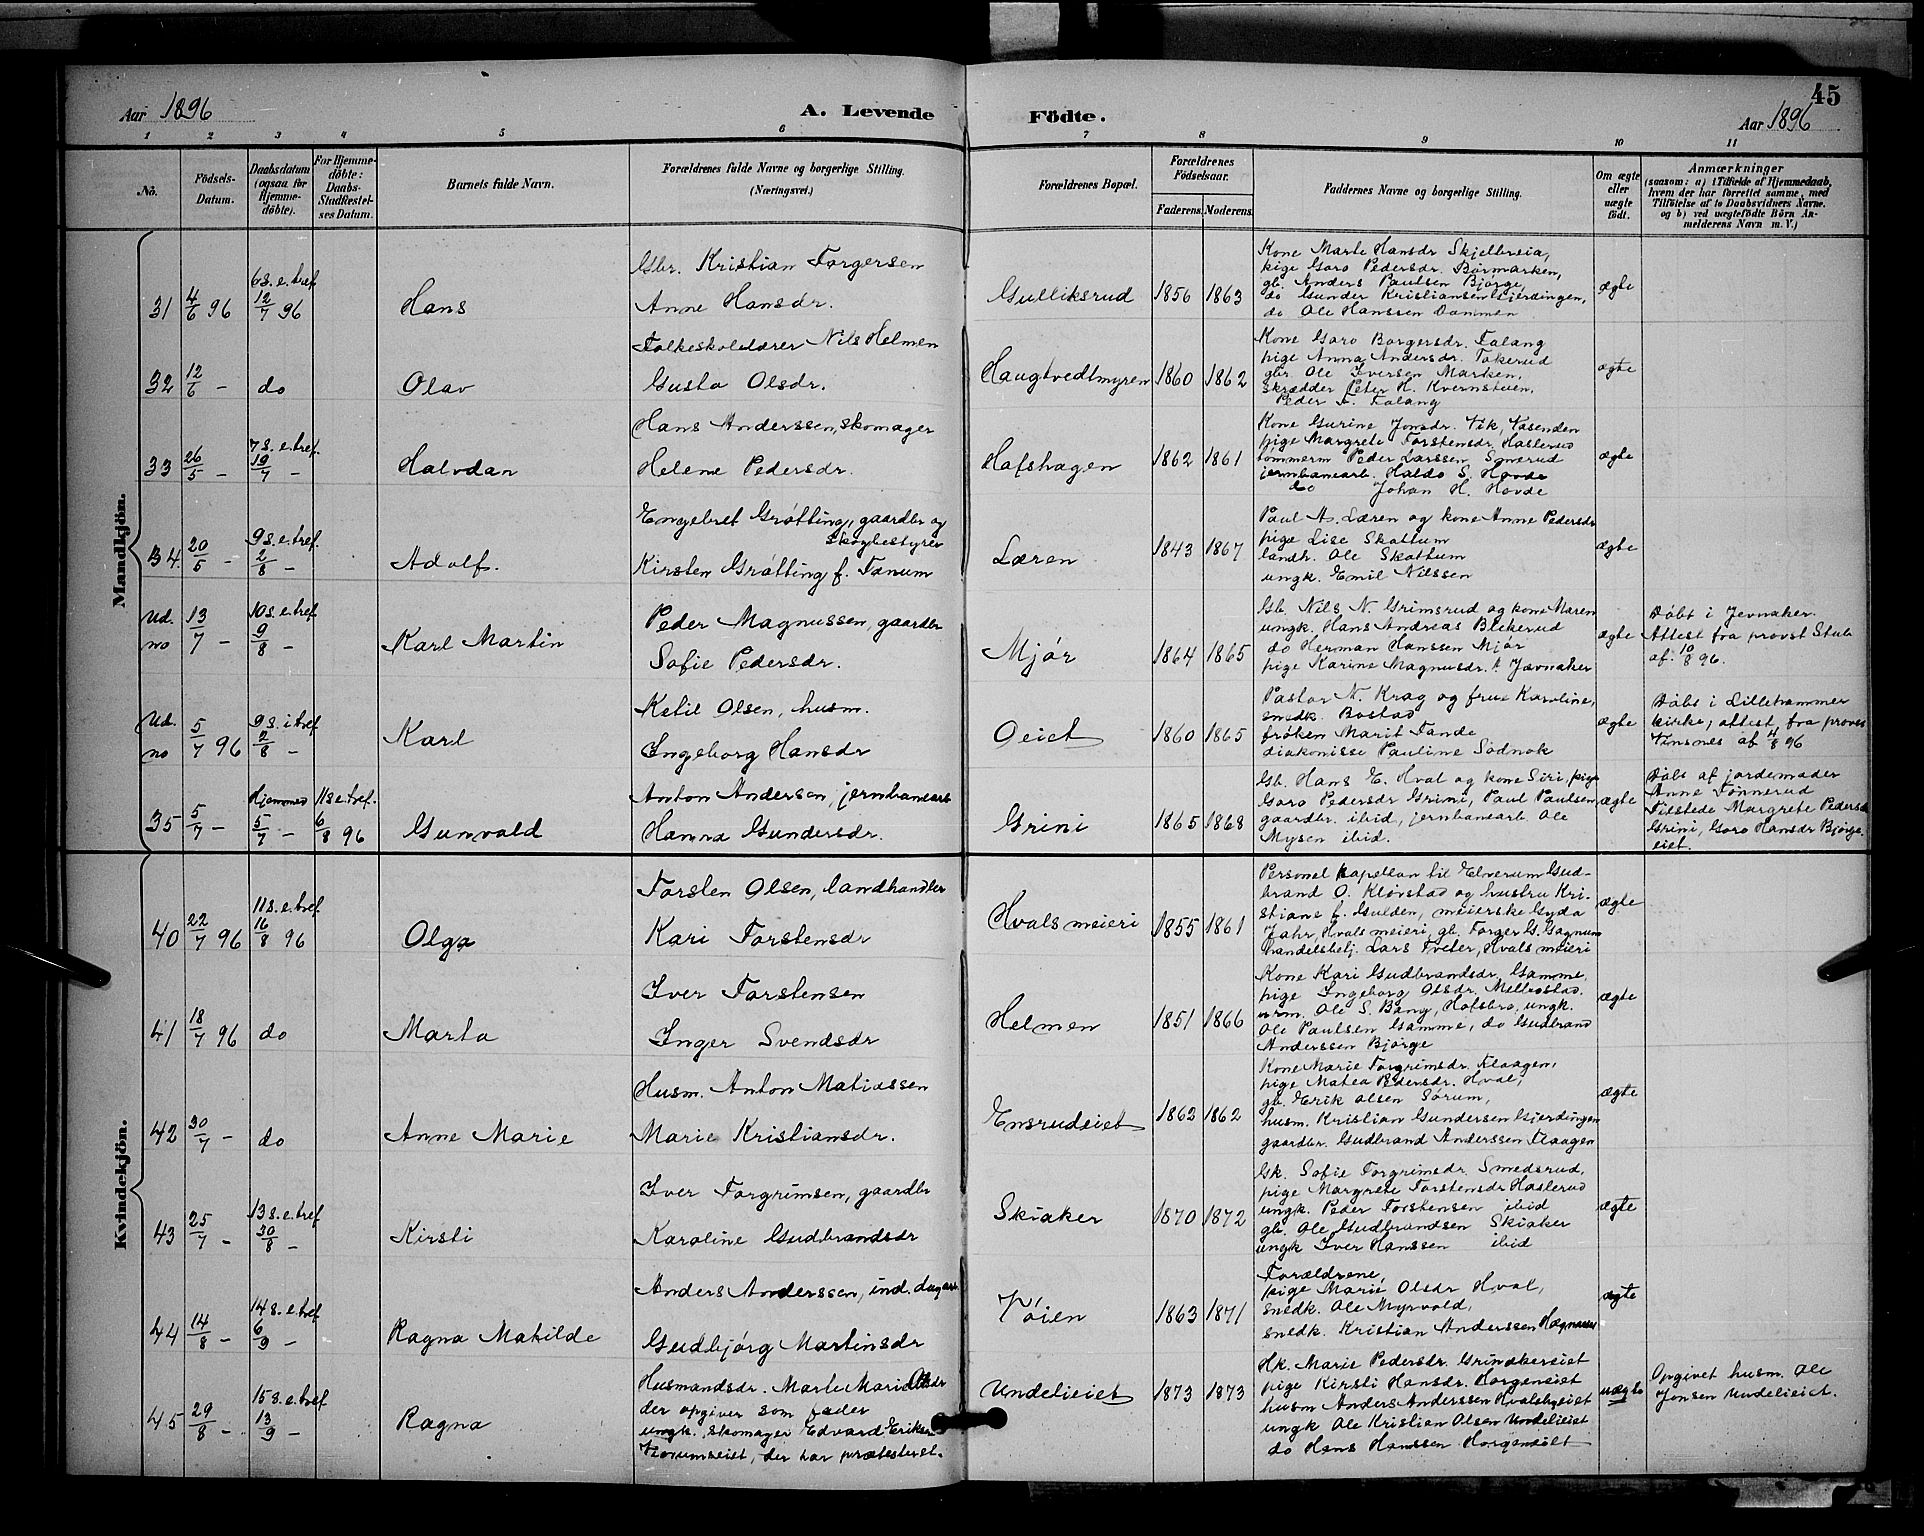 45
Aar 1896
A. Levende
Födte.
Aar 1896
1 2 3 4 5 6 7 8 9 10 11
No.
Födsels-
Datum.
Daabsdatum
(ogsaa for
Hjemme-
döbte).
For Hjemme-
döbte:
Daabs-
Stadfæstel-
ses Datum.
Barnets fulde Navn.
Forældrenes fulde Navne og borgerlige Stilling.
(Næringsvei.)
Forældrenes Bopæl.
Forældrenes
Födselsaar.
Faderens. Moderens.
Faddernes Navne og borgerlige Stilling.
Om ægte
eller
uægte
födt.
Anmærkninger
(saasom: a) i Tilfælde af Hjemmedaab,
hvem der har forrettet samme, med
Tilföielse af to Daabsvidners Navne,
og b) ved uægtefödte Börn An-
melderens Navn m. V.)
Mandkjön.
31 4/6 96
6 s. e. tref
12/7 96
Hans
Gbr. Kristian Torgersen
Anne Hansdr.
Gulliksrud
1856 1863
Kone Marte Hansdr Skjelbreia,
pige Goro Pedersdr. Börmarken,
gb. Anders Paulsen Bjørge,
do Gunder Kristiansen Gjerdingen,
do Ole Hanssen Dammen
ægte
32 12/6 -
do
Olav
Folkeskolelærer Nils Helmen
Gusta Olsdr.
Haugtvedtmyren
1860 1862
Kone Goro Borgersdr. Falang
pige Anna Andersdr. Tokerud
gbr. Ole Iversen Marken,
skrædder Peter H. Kvernstuen,
Peder T. Falang
ægte
33 26/5 -
7 s. e. tref.
19/7 -
Halvdan
Hans Anderssen, skomager
Helene Pedersdr.
Hofshagen
1862 1861
Kone Gurine Jonsdr. Vik Vasenden
pige Margrete Torstensdr. Haslerud
tømmerm Peder Larssen Smerud
jernbanearb. Haldo S. Hovde
do Johan H. Hovde
ægte
34 20/5 -
9 s. e. tref.
2/8 -
Adolf.
Engebret Grøtting, gaardbr og
skogbestyrer
Kirsten Grøtting f. Tanum
Læren
1843 1867
Paul A. Læren og kone Anne Pedersdr
pige Lise Skattum
landh. Ole Skattum
ungk. Emil Nilssen
ægte
Ud.
no
13/7 -
10 s. e. tref
9/8 -
Karl Martin
Peder Magnussen, gaardbr
Sofie Pedersdr.
Mjör
1864 1865
Gb. Nils N. Grimsrud og kone Maren
ungk. Hans Andreas Blekerud
do Herman Hanssen Mjör
pige Karine Magnusdr. Jævnaker
ægte
Döbt i Jevnaker.
Attest fra provst Stub
af 10/8 96.
Ud.
no
5/7 96
9 s. i tref
2/8 -
Karl
Ketil Olsen, husm.
Ingeborg Hansdr
Oeiet
1860 1865
Pastor N. Krag og frue Karoline,
snedk. Bostad
frøken Marit Tande
diakonisse Pauline Södnok
ægte
Döbt i Lillehammer
kirke, attest fra provst
Vinsnes af 4/8 96
35 5/7 -
Hjemmed
5/7 -
11 s. e. tref.
6/8 96
Gunvald
Anton Andersen, jernbanearb
Hanna Gundersdr.
Grini
1865 1868
Gb. Hans E. Hval og kone Siri, pige
Goro Pedersdr Grini, Paul Paulsen
gaardbr. ibid, jernbanearb. Ole
Mysen ibid.
ægte
Döbt af jordemoder
Anne Tönnerud
Tilstede Margrete Pedersdr
Grini, Goro Hansdr Bjørge-
eiet.
Kvindekjön.
40 22/7 96
11 s. e. tref.
16/8 96
Olga
Torsten Olsen, landhandler
Kari Torstensdr
Hvals meieri
1855 1861
Personel kapellan til Elverum Gud-
brand O. Klövstad og hustru Kri-
stiane f. Gulden, meierske Gyda
Jahr, Hvals meieri, gb. Torger G. Gagnum
handelsbetj. Lars Tveter, Hvals meieri
ægte
41 18/7 96
do
Marta
Iver Torstensen
Inger Svendsdr
Helmen
1851 1866
Kone Kari Gudbrandsdr. Gamme,
pige Ingeborg Olsdr. Mellostad.
urm. Ole S. Bang, Hofsbro, ungk.
Ole Paulsen Gamme, do Gudbrand
Anderssen Bjørge
ægte
42 30/7 -
do
Anne Marie
Husm. Anton Matiassen
Marie Kristiansdr.
Ensrudeiet
1862 1862
Kone Marie Torgrimsdr. Flaagen,
pige Matea Pedersdr. Hval,
gb. Erik Olsen Sørum,
husm. Kristian Gundersen Gjerdingen
gaardbr. Gudbrand Anderssen Flaagen
ægte
43 25/7 -
13 s. e. tref
30/8 -
Kirsti
Iver Torgrimsen, gaardbr
Karoline Gudbrandsdr
Skiaker
1870 1872
Gk. Sofie Torgrimsdr. Smedsrud,
pige Margrete Torstensdr Haslerud
ungk. Peder Torstensen ibid
gb. Ole Gudbrandsen Skiaker
ungk Iver Hanssen ibid
ægte
44 14/8 -
14 s. e. tref
6/9 -
Ragna Matilde
Anders Anderssen, ind. dagarb.
Gudbjørg Martinsdr
Töien
1863 1871
Forældrene,
pige Marie Olsdr Hval,
snedk. Ole Myrvold,
snedk. Kristian Anderssen
ægte
45 29/8 -
15 s. e. tref
13/9 -
Ragna
Husmandsdr. Marte Marie Olsdr
der opgiver som fader
ungk. skomager Edvard Eriksen
der har protesteret.
Undelieiet
1873 1873
Hk. Marie Pedersdr. Grinakereiet
pige Kirsti Hansdr. Horgeneiet
husm Anders Anderssen Hvalsbyeiet
ungk Ole Kristian Olsen Undelieiet
do Hans Hanssen Horgeneiet
uægte
Opgivet husm. Ole
Jonsen Undelieiet.